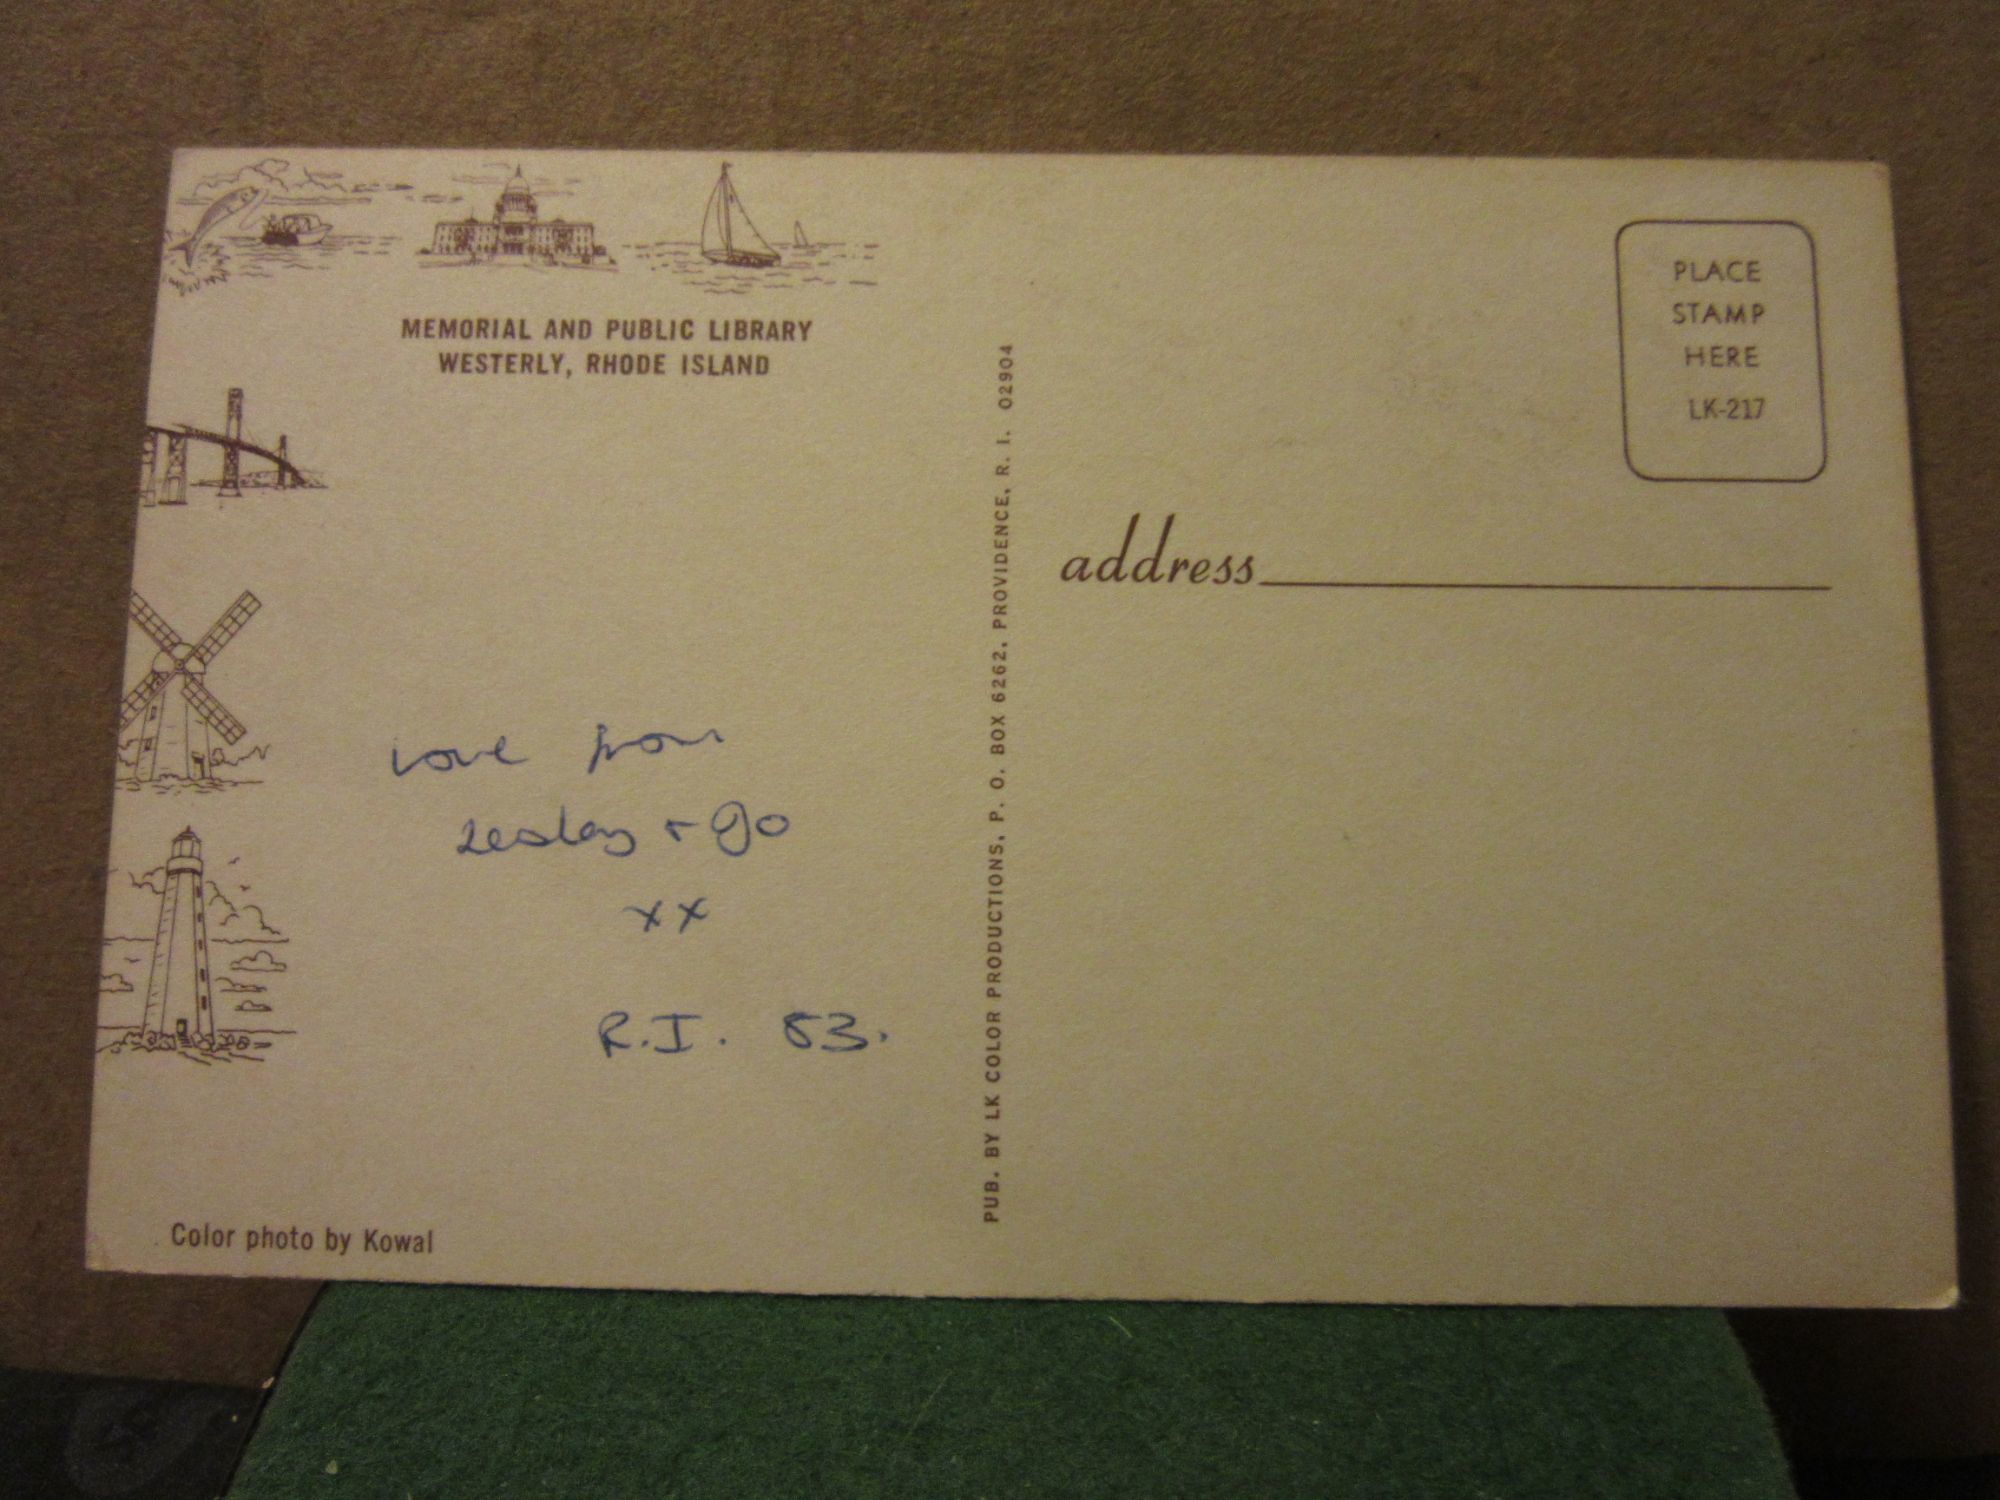 MEMORIAL AND PUBLIC LIBRARY
WESTERLY, RHODE ISLAND
Love from
Lesley + Jo
xx
R.I. 83.
Color photo by Kowal
PUB. BY LK COLOR PRODUCTIONS, P. O. BOX 6262, PROVIDENCE, R. I. 02904
PLACE
STAMP
HERE
LK-217
address